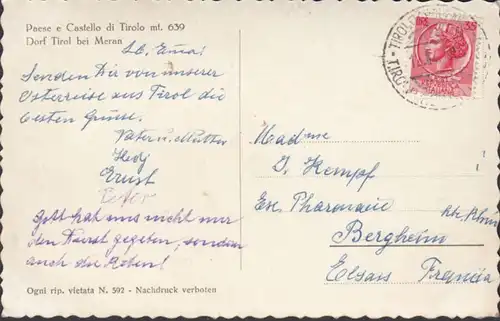 Paese e Castello di Tirolo mt. 639
Dorf Tirol bei Meran
Lb. Erna!
Senden Dir von unserer
Osterreise aus Tirol die
besten Grüsse.
Vater u. Mutter
Hedj
Ernst
Peter
Gott hat uns nicht nur
den Durst gegeben, sondern
auch die Reben!
Ogni rip. vietata N. 592 - Nachdruck verboten
35
TIROLO
Madame
J. Kempf
Ex. Pharmacie
Bergheim
Elsass Francia